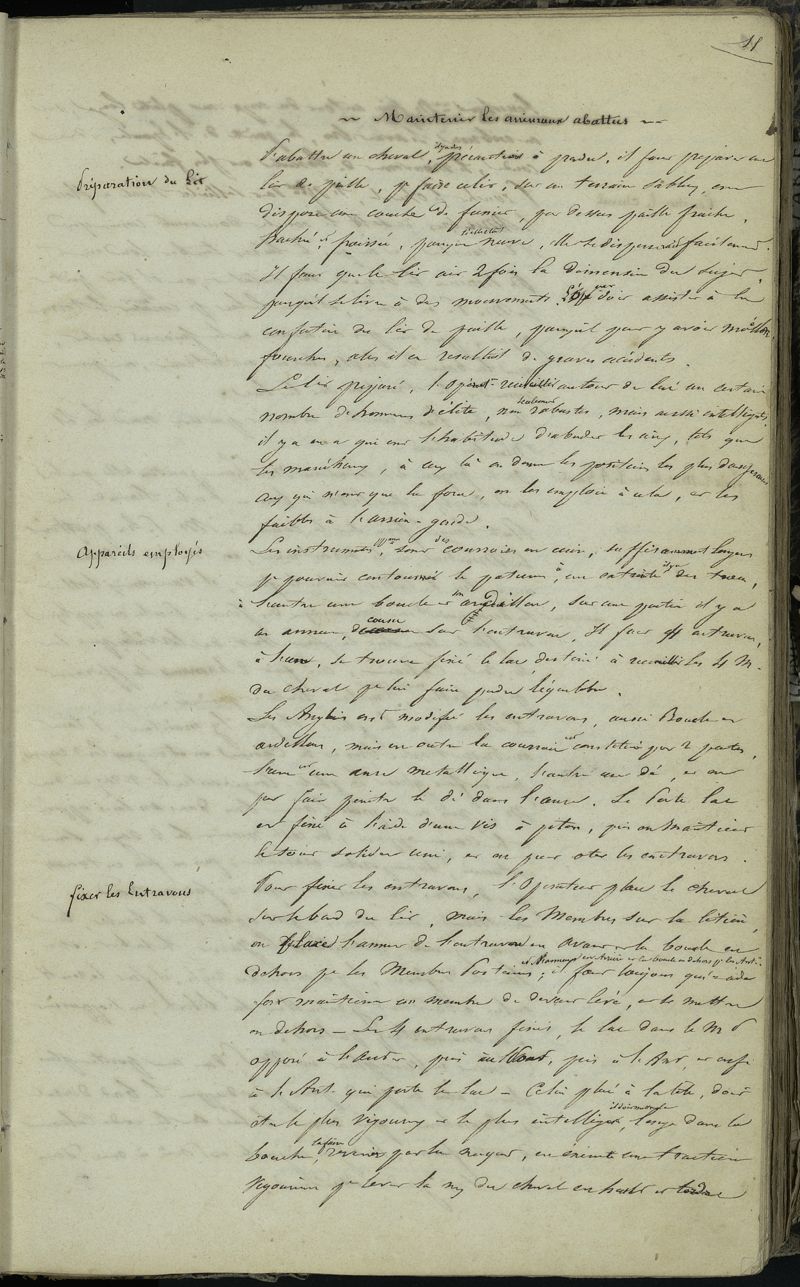 11
~ Maintenir les animaux abattus ~
Préparation du Lit
d'abattre un cheval, précautions à prendre, il faut préparer un
lit de paille, pr faire ce lit, sur un terrain sableux, on
dispose une couche de fumier, par dessus paille fraîche,
froissée, parceque neuve, elle se disperserait facilement.
Il faut que le lit ait 2 fois la dimension du sujet,
parcequ'il se livre à des mouvements. L'Opr doit assister à la
confection du lit de paille, parcequ'il peut y avoir
fourches, alors il en resulterait de graves accidents.
Le lit préparé, l'Opérat. recueille autour de lui un certain
nombre d'hommes d'élite, non seulement robustes, mais aussi intelligents,
il y en a qui ont l'habitude d'aborder les anx, tels que
les maréchaux, à ceux là on donne les positions les plus dangereuses
ceux qui n'ont que la force, on les emploie à cela, et les
faibles à l'arrière-garde.
Appareils employés
Les instruments sont des courroies en cuir, suffisamment longues
pr pouvoir contourner le paturon, à une extrémité il y a des trous,
à l'autre une boucle et un ardillon, sur une partie il y a
un anneau, cousu sur l'entravon. Il faut 4 entravons,
à l'un, se trouve fixé le lac, destiné à recueillir les 4 M.
du cheval pr lui faire perdre l'équilibre.
Les Anglais ont modifié les entravons, aussi Boucle et
ardillon, mais en outre la courroie est constituée par 2 parties,
l'une est une anse metallique, l'autre un dé, et on
peut faire pénétrer le dé dans l'anse. Le Porte lac
est fixé à l'aide d'une vis à piton, puis on maintient
le tout solidement uni, et on peut oter les entravons.
fixer les Entravons
Pour fixer les entravons, l'Opérateur place le cheval
sur le bord du lit, mais les Membres sur la litière,
on place l'anneau de l'entravon en avant et la boucle en
dehors pr les Membres Postérieurs; et l'anneau en Arrière et la boucle en dehors pr les Ant. il faut toujours qu'1 aide
fort maintienne un membre de devant levé, et le mettre
en dehors — Les 4 entravons fixés, le lac dans le M P
opposé à l'autre, puis à l'Ant, et enfin
à l'Ant. qui porte le lac — Celui placé à la tête, doit
être le plus vigoureux et le plus intelligent, dans la
bouche, par la exécute une traction
vigoureuse pr lever le nez du cheval en haut et tordre